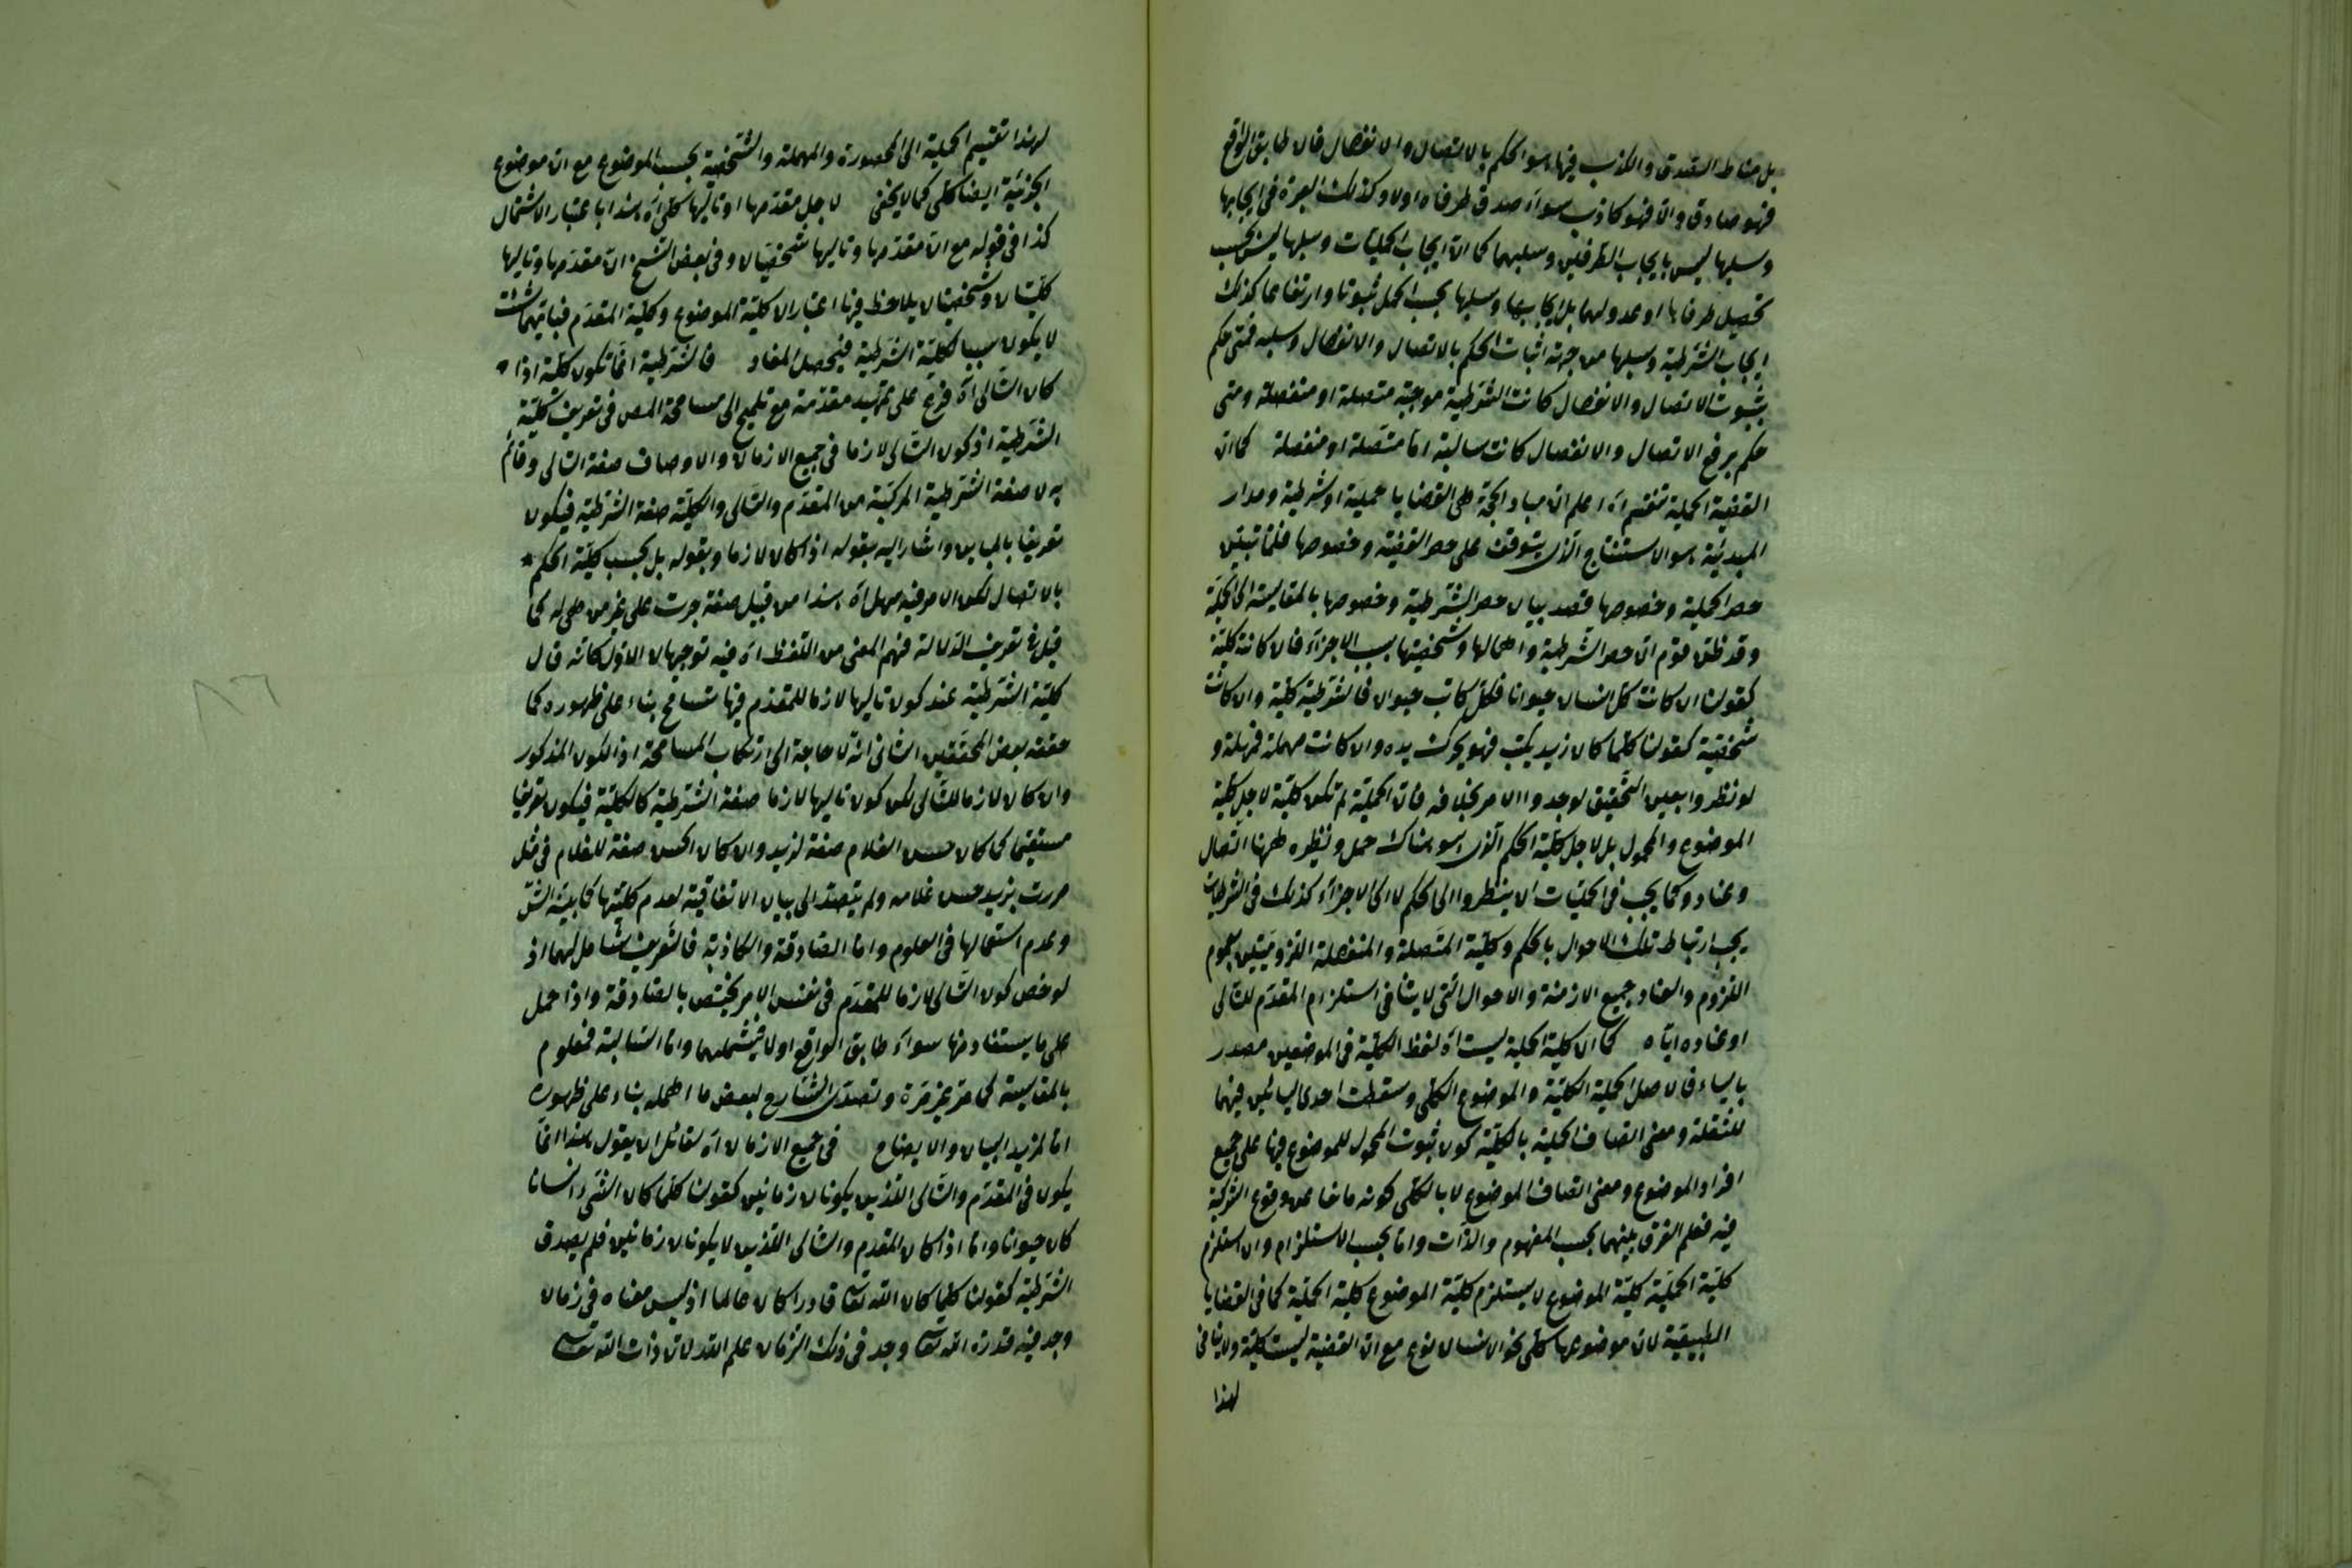 بل مناط الصدق والكذب فيها هو الحكم بالاتصال والانفصال فان طابق الواقع
فهو صادق والا فهو كاذب سواء صدق طرفاه اولا وكذلك العبرة في ايجابها
وسلبها ليس بايجاب الطرفين وسلبهما كما ان ايجاب الحمليات وسلبها ليس بحسب
تحصيل طرفاها او عدولهما بل ايجابها وسلبها بحسب الحمل ثبوتا وارتفاعا كذلك
ايجاب الشرطية وسلبها من جهة اثبات الحكم بالاتصال والانفصال وسلبه فمتى حكم
بثبوت الاتصال والانفصال كانت الشرطية موجبة متصلة او منفصلة ومتى
حكم برفع الاتصال والانفصال كانت سالبة اما متصلة او منفصلة كما ان
القضية الحملية تنقسم اه اعلم ان مباد الحجة هي القضايا حملية او شرطية ومدار
المبدئية هو الاستنتاج الذي يتوقف على حصر القضية وخصوصها فلما تبين
حصر الحملية وخصوصها قصد بيان حصر الشرطية وخصوصها بالمقايسة الى الحملية
وقد ظن قوم ان حصر الشرطية واهمالها وشخصيتها بسبب الاجزاء فان كانت كلية
كقولنا ان كانت كل انسان حيوانا فكل كاتب حيوان فالشرطية كلية وان كانت
شخصية كقولنا كلما كان زيد يكتب فهو يحرك يده وان كانت مهملة فمهملة و
لو نظروا بعين التحقيق لوجدوا الامر بخلافه فان الحملية لم تكن كلية لاجل كلية
الموضوع والمحمول بل لاجل كلية الحكم الذي هو هناك حمل ونظيره ههنا اتصال
وعناد وكما يجب في الحمليات ان ينظروا الى الحكم لا الى الاجزاء كذلك في الشرطيات
يجب ارتباط تلك الاحوال بالحكم وكلية المتصلة والمنفصلة اللزوميتين بعموم
اللزوم والعناد جميع الازمنة والاحوال التي لا ينافي استلزام المقدم للتالي
او عناده اياه كما ان كلية الحملية ليست اه لفظ الكلية في الموضعين مصدر
بالياء فان اصل الحملية الكلية والموضوع الكلي وسقطت احدى اليائين فيهما
للثقلة ومعنى اتصاف الحملية بالكلية كون ثبوت المحمول للموضوع فيها على جميع
افراد الموضوع ومعنى اتصاف الموضوع لا بالكلي كونه مانعا عن وقوع الشركة
فيه فعلم الفرق بينهما بحسب المفهوم والذات واما بحسب الاستلزام وان استلزم
كلية الحملية كلية الموضوع لا يستلزم كلية الموضوع كلية الحملية كما في القضايا
الطبيعية لان موضوعها كلي نحو الانسان نوع مع ان القضية ليست كلية ولا ينافي
لهذا
لهذا تقسيم الحملية الى المحصورة والمهملة والشخصية بحسب الموضوع مع ان موضوع
الجزئية ايضا كلي كما لا يخفى لاجل مقدمها او تاليها كلي اه هذا باعتبار الاشتمال
كذا في قوله مع ان مقدمها وتاليها شخصيان وفي بعض النسخ ان مقدمها وتاليها
كليتان وشخصيتان يلاحظ فيها اعتبار ان كلية الموضوع وكلية المقدم
لا يكون سببا لكلية الشرطية فيحصل المفاد فالشرطية انما تكون كلية اذا
كان التالي اه فرع على تمهيد مقدمة مع تلميح الى مسامحة المص في تعريف كلية
الشرطية اذ كون التالي لازما في جميع الازمان والاوصاف صفة التالي وقائم
به لا صفة الشرطية المركبة من المقدم والتالي والكلية صفة الشرطية فيكون
تعريفا بالمباين واشار اليه بقوله اذا كان لازما وبقوله بل بحسب كلية الحكم
بالاتصال لكن الامر فيه سهل اه هذا من قبيل صفة جرت على غير من هي له كما
قيل في تعريف الدلالة فهم المعنى من اللفظ اه فيه توجيهان الاول كانه قال
كلية الشرطية عند كون تاليها لازما للمقدم فيها تسامح بناء على ظهوره كما
حققه بعض المحققين الثاني انه لا حاجة الى ارتكاب المسامحة اذ الكون المذكور
وان كان لازما للتالي لكن كون تاليها لازما صفة الشرطية كالكلية فيكون تعريفا
مستقيما كما كان حسن الغلام صفة لزيد وان كان الحسن صفة للغلام في مثل
مررت بزيد حسن غلامه ولم يتصد الى بيان الاتفاقية لعدم كليتها كما بينه الش
وعدم استعمالها في العلوم واما الصادقة والكاذبة فالتعريف شامل لهما اذ
لو خص كون التالي لازما للمقدم في نفس الامر يختص بالصادقة واذا حمل
على ما يستفاد منها سواء طابق الواقع اولا فيشملهما واما السالبة فمعلوم
بالمقايسة كما مر غير مرة وتصدى الشارح لبعض ما اهمله بناء على ظهوره
اما لمزيد البيان والايضاح في جميع الازمان اه لقائل ان يقول هذا انما
يكون في المقدم والتالي اللذين يكونان زمانيين كقولنا كلما كان الشيء انسانا
كان حيوانا واما اذا كان المقدم والتالي اللذين لا يكونان زمانين فلم يصدق
الشرطية كقولنا كلما كان الله تعالى قادرا كان عالما اذ ليس معناه في زمان
وجد فيه قدرة الله تعالى وجد في ذلك الزمان علم الله لان ذات الله تعالى